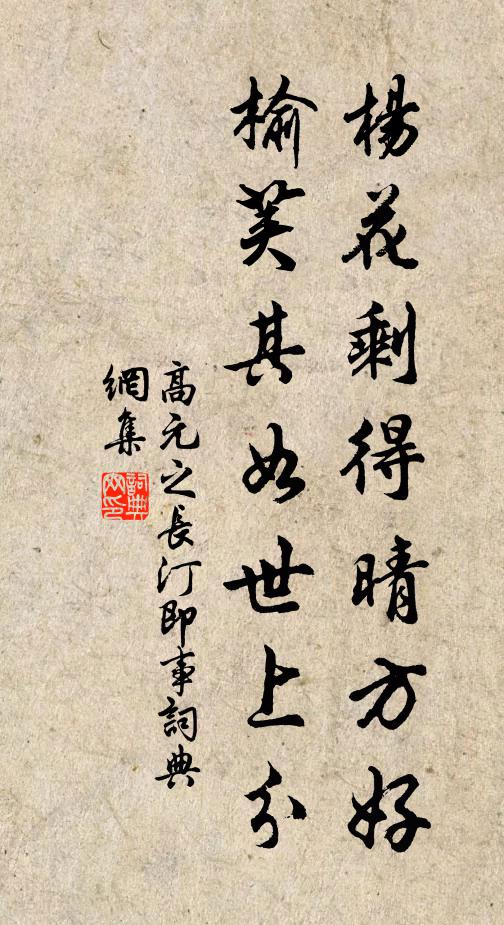 楊花剩得晴方好
榆荚其如世上分
高元之長汀即事詞典
網集
詞典
网印